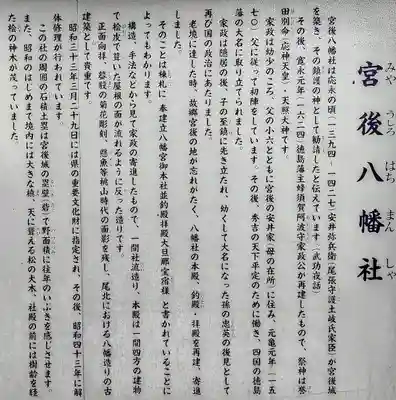 宮後八幡社
みやうしろはちまんしゃ
宮後八幡社は応永の頃(一三九四‐一四二七)安井弥兵衛(尾張守護土岐氏家臣)が宮後城
を築き、その鎮護の神として勧請したと伝えています(武功夜話)
その後、寛永元年(一六二四)徳島藩主蜂須賀阿波守家政公が再建したもので、祭神は誉
田別命(応神天皇)・天照大神です。
家政は幼少のころ、父の小六とともに宮後の安井家(母の在所)に住み、元亀元年(一五
七〇)父に従って初陣をしています。その後、秀吉の天下平定のために働き、四国の徳島
藩の大名に取り立てられました。
家政は隠居の後、子の至鎮に先き立たれ、幼くして大名になった孫の忠英の後見として
再び国の政治にあたりました。
老境に達した時、故郷宮後の地が忘れがたく、八幡社の本殿、釣殿・拝殿を再建、寄進
しました。
そのことは棟札に「奉建立八幡宮御本社並釣殿拝殿大旦那宝宿様」と書かれていることに
よってもわかります。
構造、手法などから見て家政の寄進したもので、一間社流造り、本殿は一間四方の建物
で桧皮で葺いた屋根の面が流れるように反った造りです。
正面向拝、蟇股の菊花彫刻、懸魚等桃山時代の面影を残し、尾北における八幡造りの古
建築として貴重です。
昭和三十三年三月二十九日には県の重要文化財に指定され、その後、昭和四十三年に解
体修理が行われています。
この社の周囲の石積土塁は宮後城の塁壁(砦)で野面積に往年のいぶきを感じさせます。
また、昭和のはじめまで境内には大きな椿、天に聳える松の大木、社殿の前には樹齢を経
た桧の神木が茂っていました。